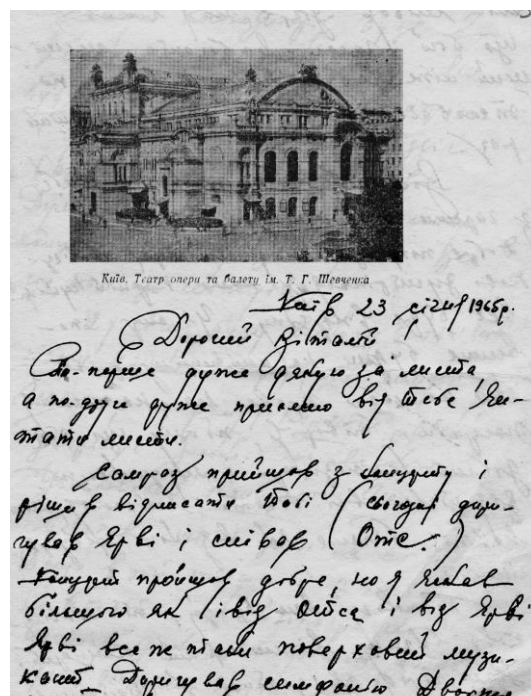 Київ. Театр опери та балету ім. Т. Г. Шевченка
Київ 23 січня 1965р.
Дорогий Віталій!
По-перше дуже дякую за листа,
а по-друге дуже приємно від тебе чи-
тати листи.
прийшов з концерту і
рішив відписати тобі (сьогодні дири-
гував Ярві і співав Отс.)
Концерт пройшов добре, но я чекав
більшого як і від Отса і від Ярві
Ярві все ж таки поверховий музи-
кант. Диригував симфонію